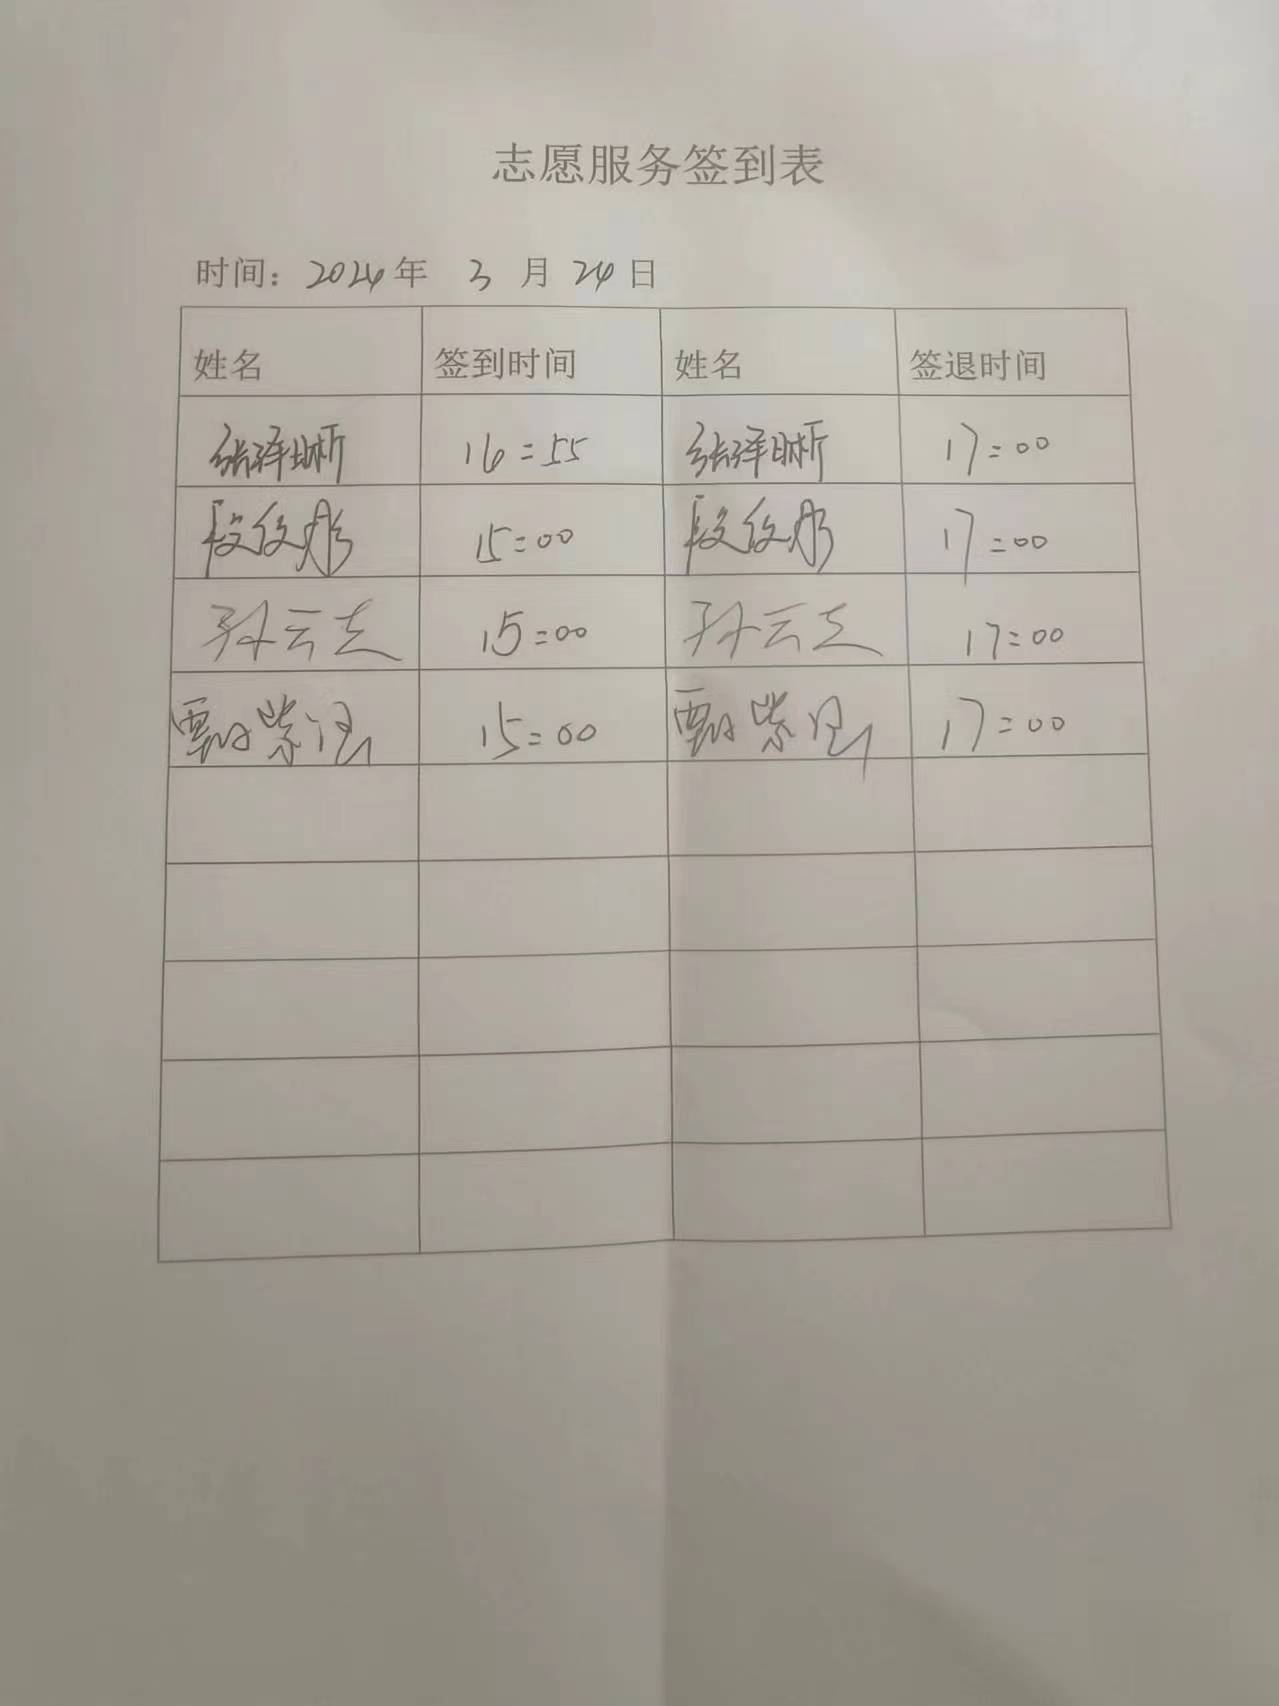 志愿服务签到表
时间：2024年 3 月 24 日
姓名 签到时间 姓名 签退时间
张泽晰 16:55 张泽晰 17:00
段俊彤 15:00 段俊彤 17:00
孙云 15:00 孙云 17:00
甄紫 15:00 甄紫 17:00